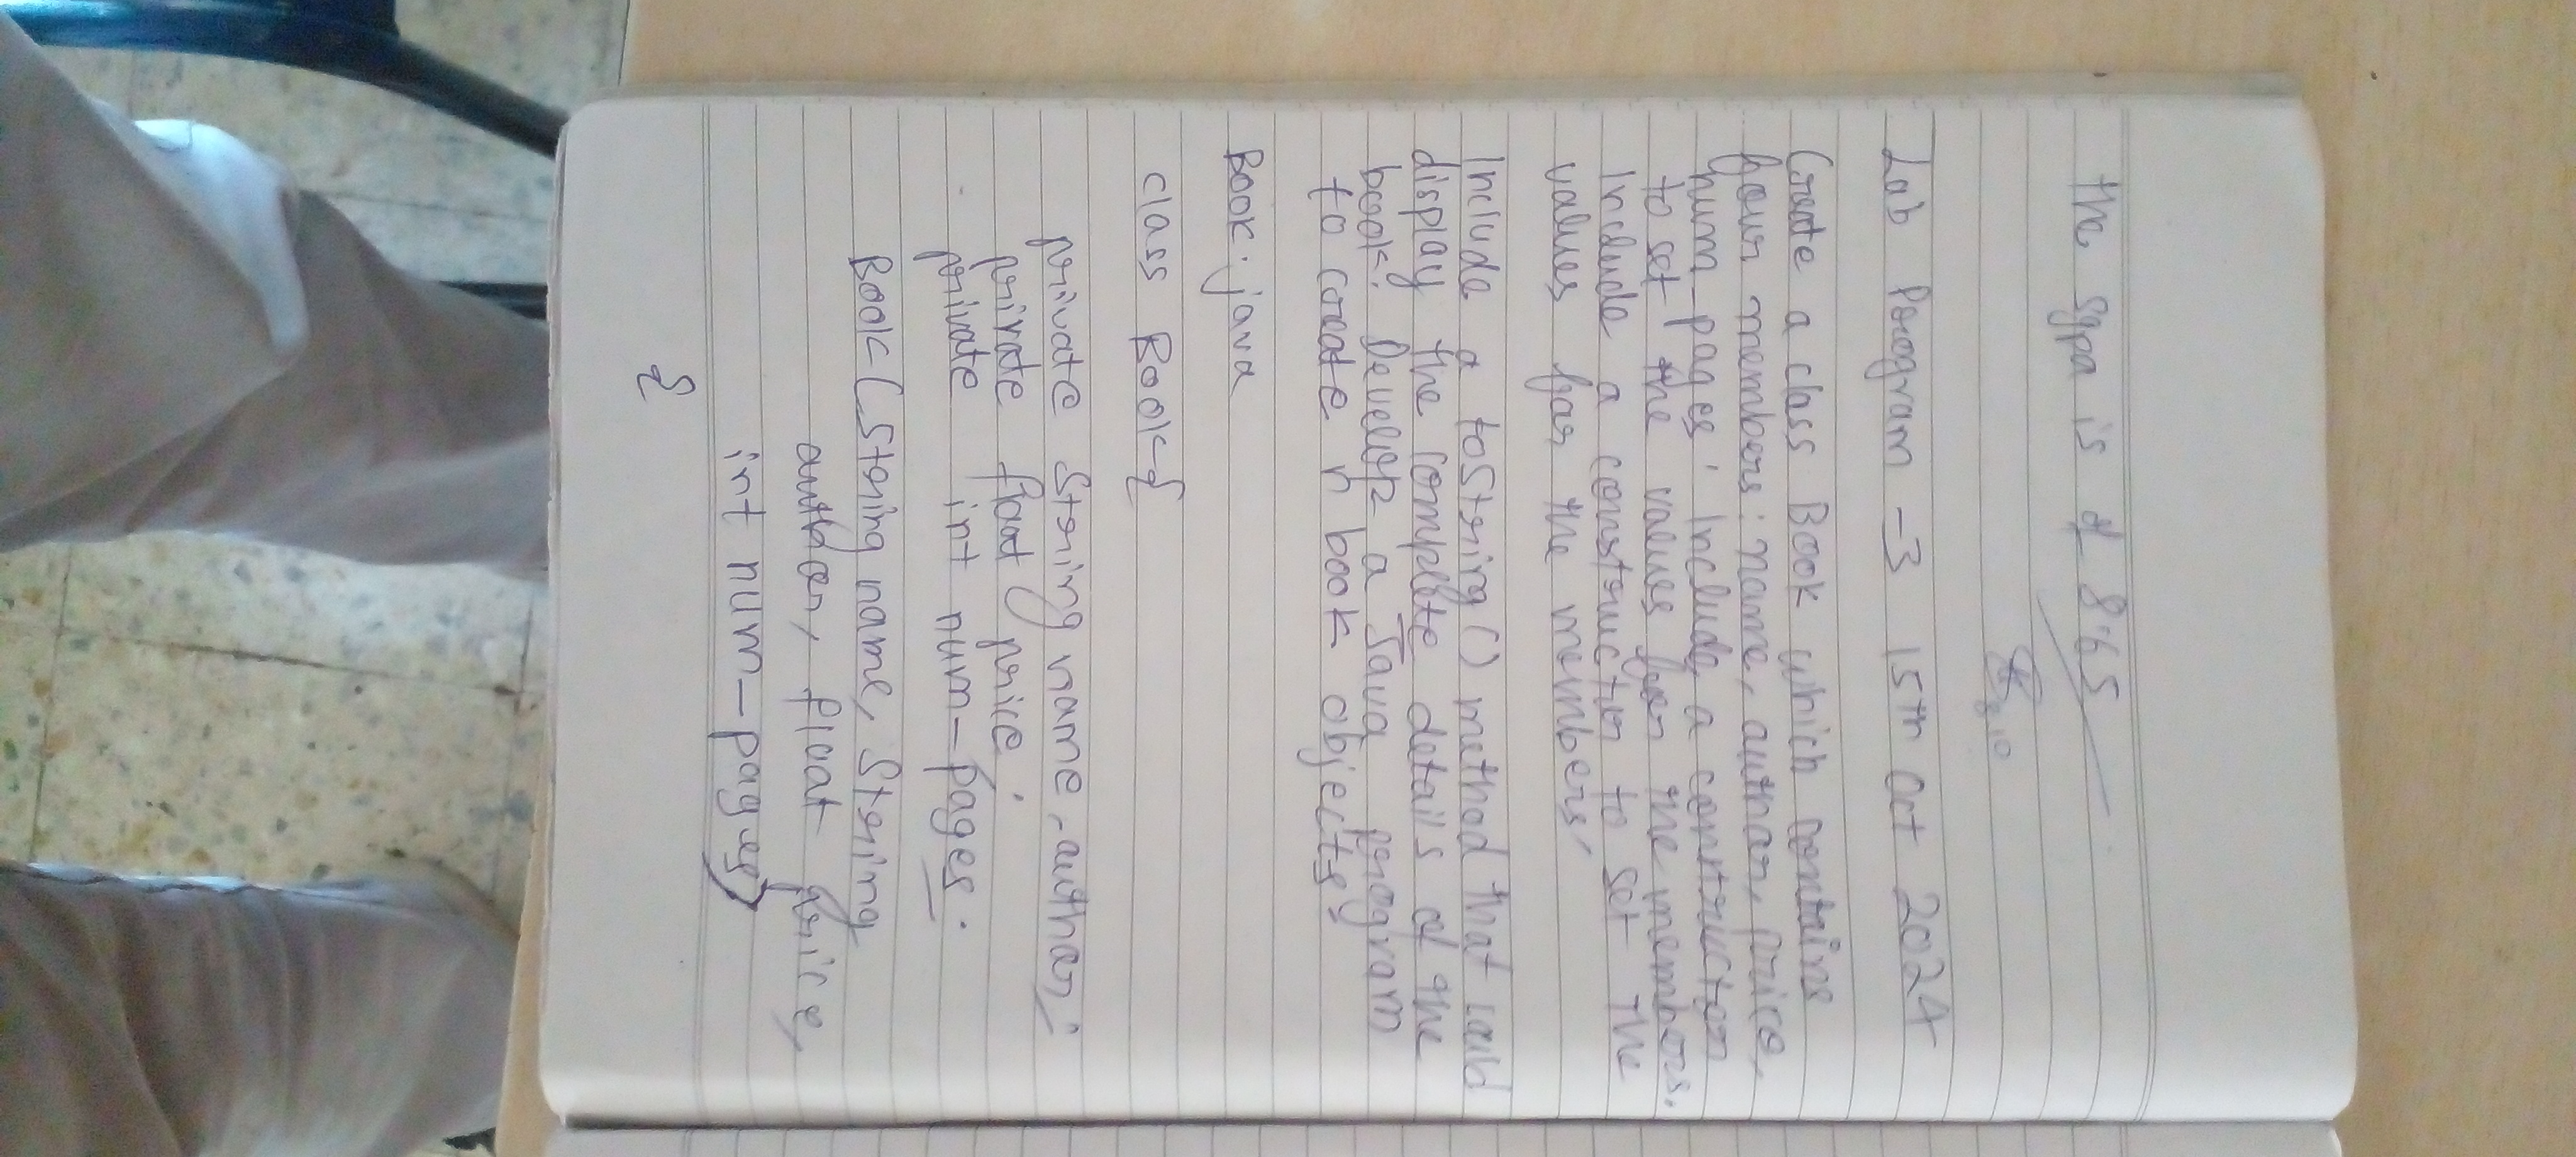 the sgpa is of 8.65
Lab Program - 3 15th Oct 2024
Create a class Book which contains
four members: name, author, price,
num-pages. Include a constructor
to set the values for the members.
Include a constructor to set the
values for the members,
Include a toString() method that could
display the complete details of the
book. Develop a Java program
to create n book objects
Book.java
class Book{
private String name, author;
private float price;
private int num-pages.
Book(String name, String
author, float price,
int num-pages)
{